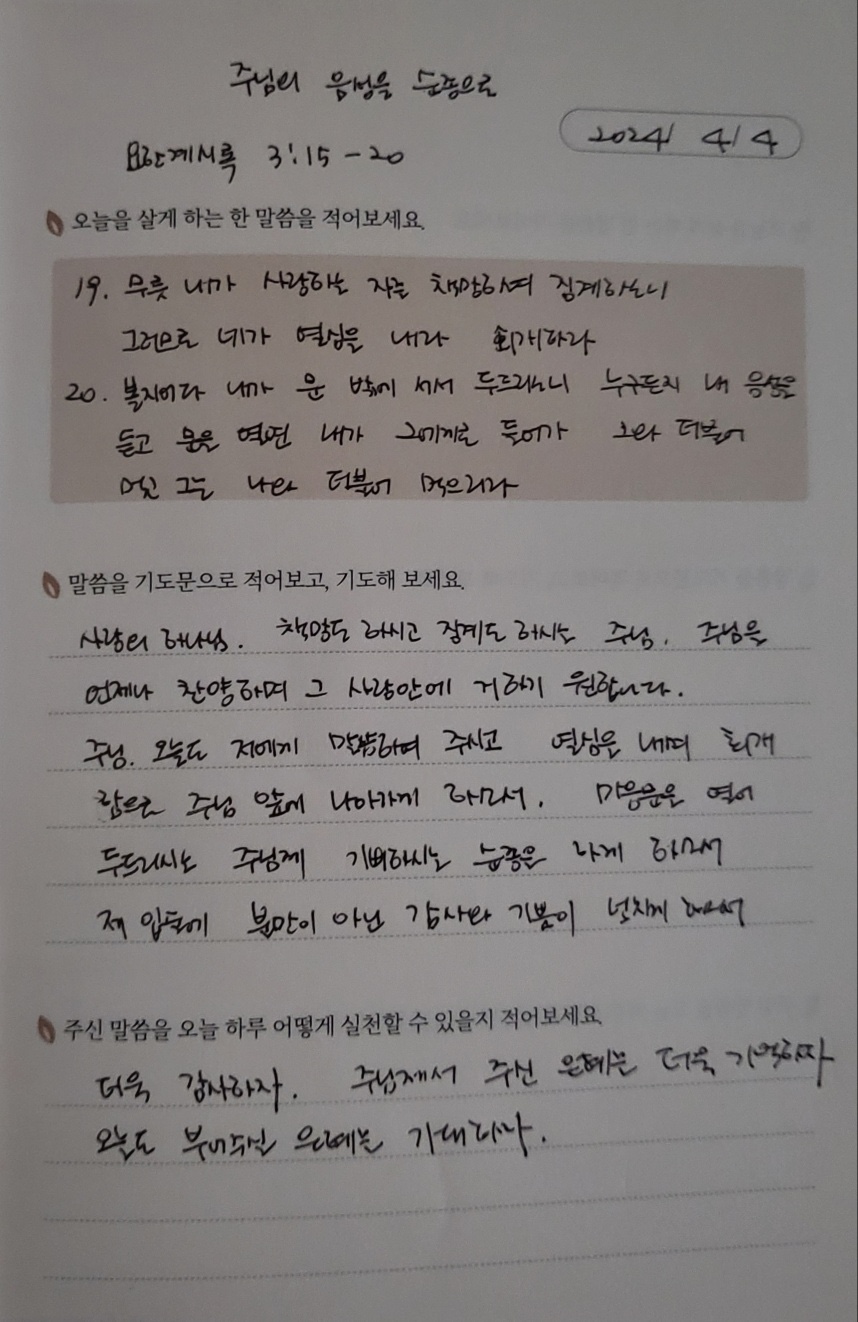 주님의 음성을 순종으로
2024/ 4/ 4
요한계시록 3:15-20
오늘을 살게 하는 한 말씀을 적어보세요.
19. 무릇 내가 사랑하는 자를 책망하여 징계하노니
그러므로 네가 열심을 내라 회개하라
20. 볼지어다 내가 문 밖에 서서 두드리노니 누구든지 내 음성을
듣고 문을 열면 내가 그에게로 들어가 그와 더불어
먹고 그는 나와 더불어 먹으리라
말씀을 기도문으로 적어보고, 기도해 보세요.
사랑의 하나님. 책망도 하시고 징계도 하시는 주님. 주님을
언제나 찬양하며 그 사랑안에 거하기 원합니다.
주님. 오늘도 저에게 말씀하여 주시고 열심을 내며 회개
함으로 주님 앞에 나아가게 하소서. 마음문을 열어
두드리시는 주님께 기뻐하시는 순종을 하게 하소서
제 입술에 불만이 아닌 감사와 기쁨이 넘치게 하소서
주신 말씀을 오늘 하루 어떻게 실천할 수 있을지 적어보세요.
더욱 감사하자. 주님께서 주신 은혜를 더욱 기억하자
오늘도 부어주실 은혜를 기대하자.